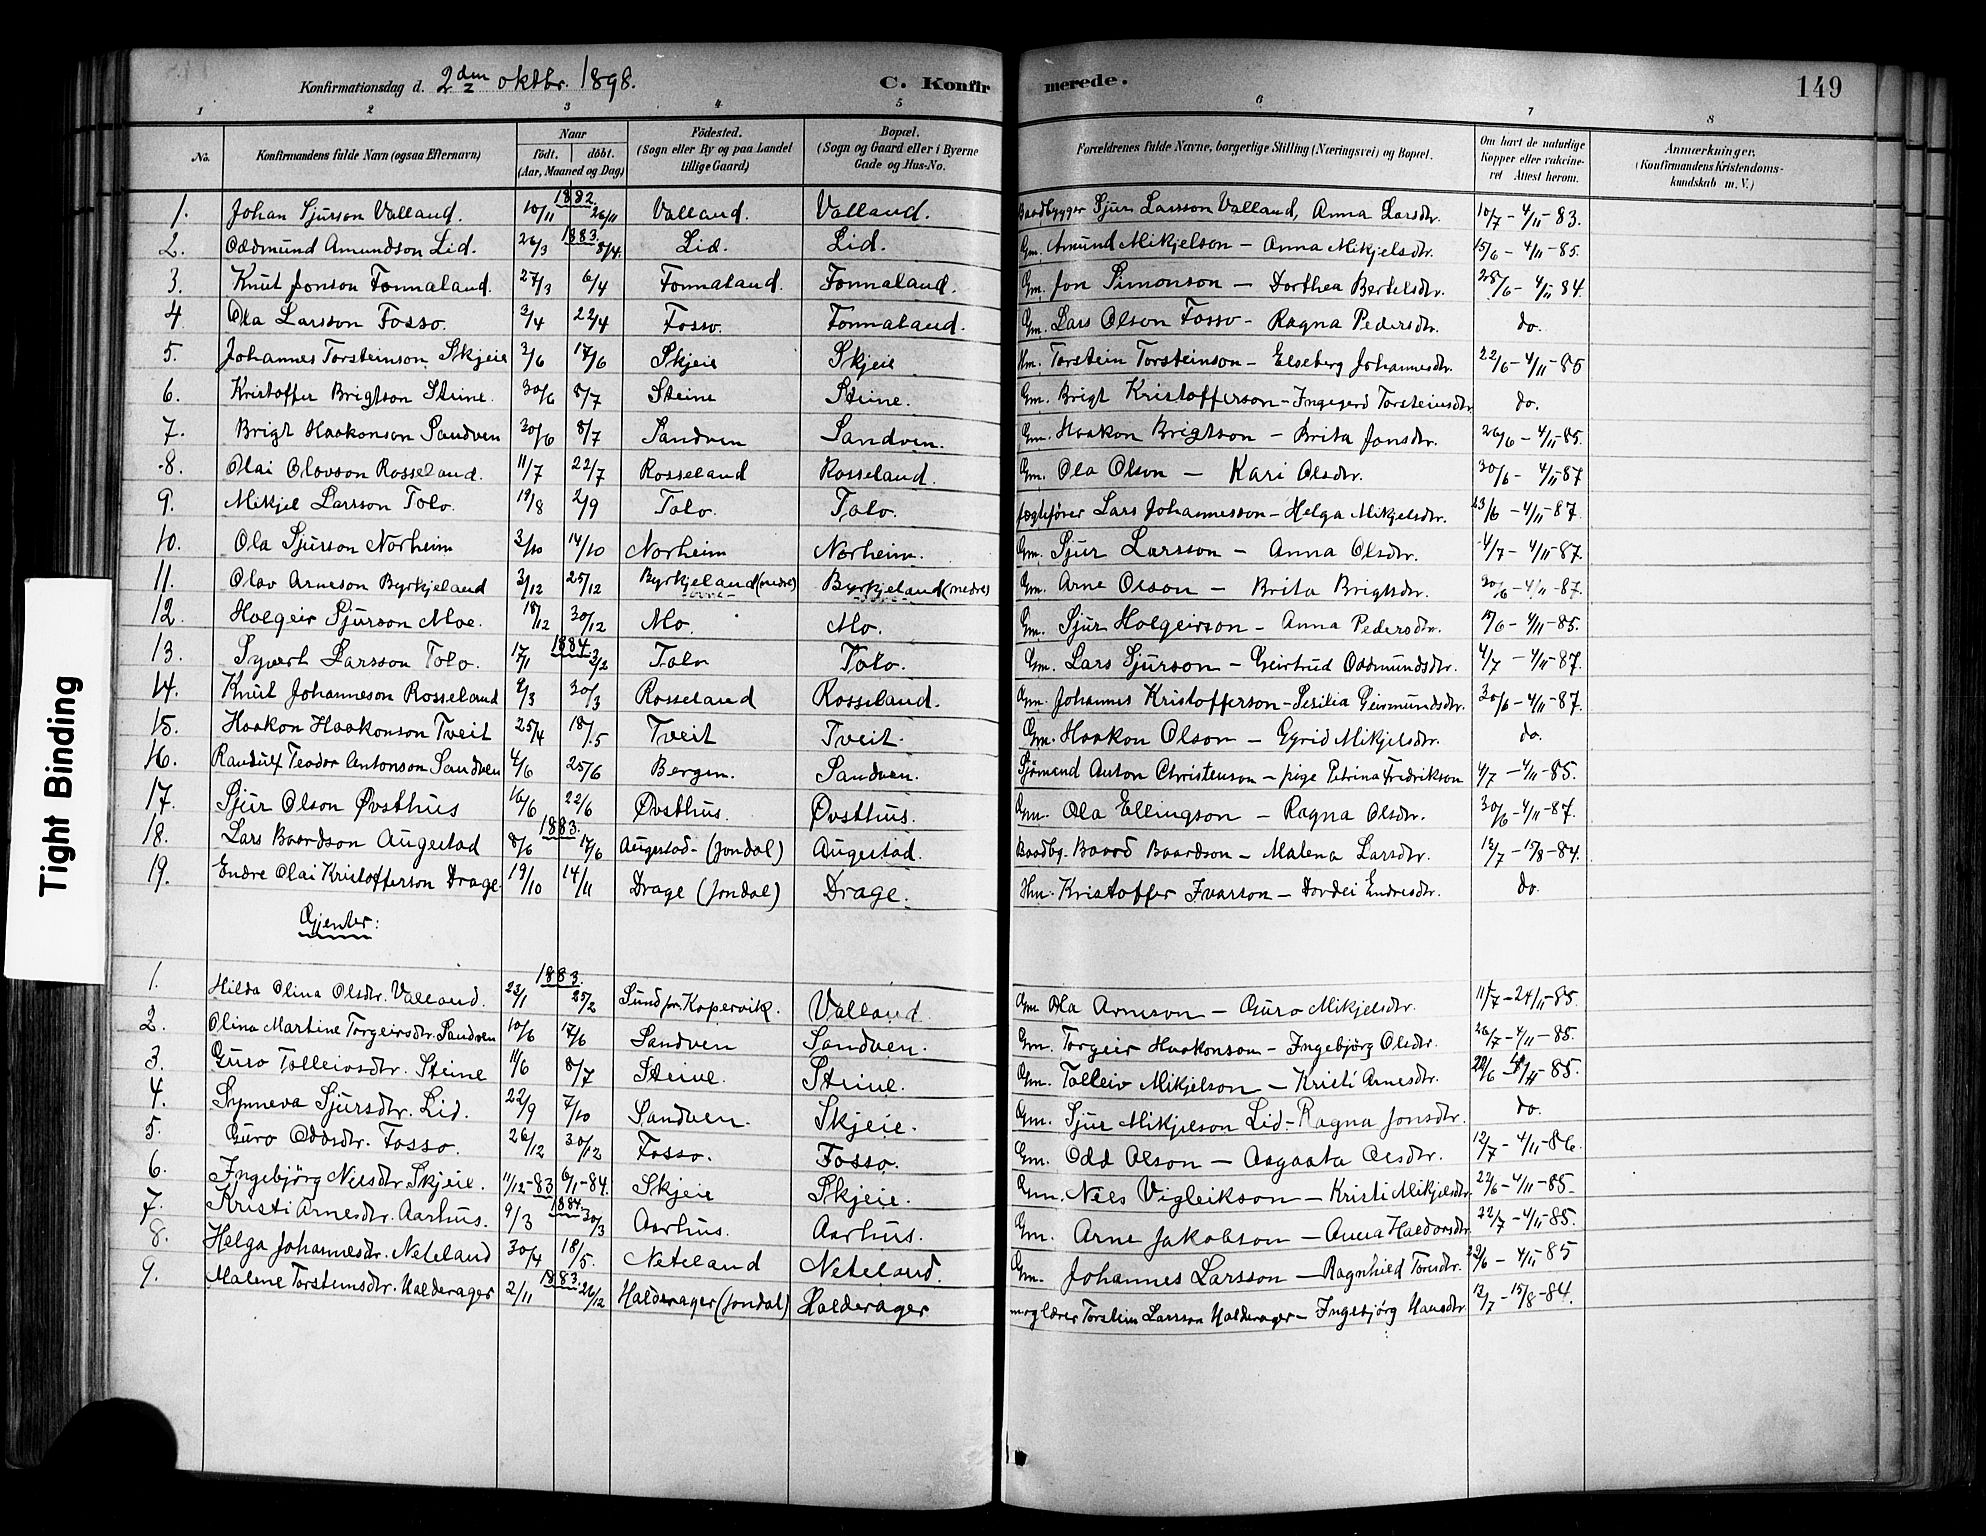 Konfirmationsdag d. 2den oktbr. 1898. C. Konfirmerede. 149
1 2 3 4 5 6 7 8
No. Konfirmandens fulde Navn (ogsaa Efternavn) Naar födt. döbt. (Aar, Maaned og Dag) Födested. (Sogn eller By og paa Landet tillige Gaard) Bopæl. (Sogn og Gaard eller i Byerne Gade og Hus-No. Forældrenes fulde Navne, borgerlige Stilling (Næringsvei) og Bopæl. Om havt de naturlige Kopper eller vakcineret Attest herom. Anmærkninger. (Konfirmandens Kristendomskundskab m. V.)
1. Johan Sjurson Valland. 10/11 1882. 26/11 Valland. Valland. Baadbygger Sjur Larsson Valland, Anna Larsdtr. 10/7 - 4/11-83.
2. Oddmund Amundson Lid. 26/3 1883. 8/4. Lid. Lid. Gm. Amund Mikjelson - Anna Mikjelsdtr. 15/6 - 4/11-85.
3. Knut Jonson Fonnaland. 27/3 6/4 Fonnaland. Fonnaland. Gm. Jon Simonson - Dorthea Bertelsdtr. 28/6 - 4/11 84.
4 Ola Larsson Fosso. 3/4 22/4 Fosso. Fonnaland. Gm. Lars Olson Fosso - Ragna Pedersdtr. do.
5. Johannes Torsteinson Skjeie 3/6 17/6 Skjeie Skjeie Hm. Torstein Torsteinson - Elseberg Johannesdtr. 22/6 - 4/11-85
6. Kristoffer Brigtson Steine. 30/6 8/7 Steine Steine. Gm. Brigt Kristofferson - Ingegerd Torsteinsdtr do.
7. Brigt Haakonson Sandven 30/6 8/7 Sandven Sandven. Gm. Haakon Brigtson - Brita Jonsdtr. 26/6 - 4/11-85.
8. Olai Olovson Rosseland. 11/7 22/7 Rosseland Rosseland. Gm. Ola Olson - Kari Olsdtr. 30/6 - 4/11 87
9. Mikjel Larsson Tolo. 19/8 2/9 Tolo. Tolo. fægtefører Lars Johannesson - Helga Mikjelsdtr. 23/6 - 4/11-87.
10. Ola Sjurson Norheim 3/10 14/10 Norheim Norheim. Gm. Sjur Larsson - Anna Olsdtr. 4/7 - 4/11-87.
11. Olav Arneson Byrkjeland 3/12 25/12 Byrkjeland (nedre) Byrkjeland (nedre) Gm. Arne Olson - Brita Brigtsdtr. 30/6 - 4/11-87.
12. Holgeir Sjurson Moe. 18/12 30/12 Mo. Mo. Gm. Sjur Holgeirson - Anna Pedersdtr. 15/6 - 4/11-85.
13. Syvert Larsson Tolo. 17/1 1884. 3/2 Tolo Tolo. Gm. Lars Sjurson - Geirtrud Oddmundsdtr. 4/7 - 4/11-87.
14. Knut Johanneson Rosseland 9/3 30/3 Rosseland Rosseland. Gm. Johannes Kristofferson - Sesilia Geirmundsdtr. 30/6 - 4/11-87.
15. Haakon Haakonson Tveit 25/4 18/5 Tveit Tveit. Gm. Haakon Olson - Gyrid Mikjelsdtr. do.
16. Randulf Teodor Antonson Sandven 4/6 25/6 Bergen. Sandven. Sjömand Anton Christenson - pige Petrina Fredrikson 4/7 - 4/11-85.
17. Sjur Olson Øvsthus 16/6 22/6 Øvsthus. Øvsthus. Gm. Ola Ellingson - Ragna Olsdtr. 30/6 - 4/11-87.
18. Lars Baardson Augestad 8/6 1883. 17/6 Augestad - (Jondal) Augestad. Baadbg. Baard Baardson - Malena Larsdtr. 12/7 - 15/8-84.
19. Endre Olai Kristofferson Drage 19/10 14/11 Drage (Jondal) Drage. Hm. Kristoffer Ivarson - Dordei Endresdtr. do.
Gjenter:
1. Hilda Olina Olsdtr. Valland. 23/1 1883. 25/2 Sund pr. Kopervik. Valland. Gm. Ola Arneson - Guro Mikjelsdtr. 11/7 - 24/11-85.
2. Olina Martine Torgeirsdtr. Sandven 10/6 17/6 Sandven Sandven. Gm. Torgeir Haakonson - Ingebjörg Olsdtr. 26/7 - 4/11-85.
3. Guro Tolleivsdtr. Steine 11/6 8/7 Steine. Steine. Gm. Tolleiv Mikjelson - Kristi Arnesdtr. 22/6 - 4/11-85.
4. Synneva Sjursdtr. Lid. 22/9 7/10 Sandven. Skjeie. Gm. Sjur Mikjelson Lid - Ragna Jonsdtr. do.
5. Guro Oddsdtr. Fosso. 26/12 30/12 Fosso. Fosso. Gm. Odd Olson - Aagaata Olsdtr. 12/7 - 4/11-86.
6. Ingebjörg Nilsdtr Skjeie. 11/12-83 6/1-84. Skjeie Skjeie. Gm. Nils Vigleikson - Kristi Mikjelsdtr. 22/6 - 4/11-85.
7. Kristi Arnesdtr. Aarhus. 9/3 1884. 30/3 Aarhus. Aarhus. Gm. Arne Jakobson - Anna Haldorsdtr. 22/7 - 4/11-85.
8. Helga Johannesdtr. Neteland 30/4 18/5. Neteland Neteland. Gm. Johannes Larsson - Ragnhild Torsdtr. 22/6 - 4/11-85
9. Malene Torsteinsdtr. Halderager 2/11 1883. 26/12 Halderager (Jondal) Halderager Torstein Larsson Halderager - Ingebjörg Hansdtr. 12/7 - 15/8-84.
Tight Binding